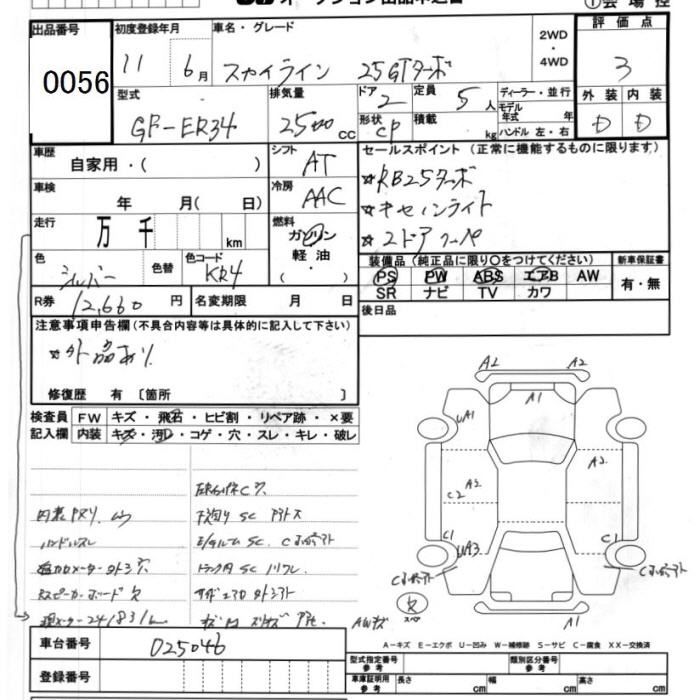 オークション出品申込書 ①会場控
出品番号 初度登録年月 車名・グレード 2WD・4WD 評価点
0056 11 6月 スカイライン 25GTターボ 3
型式 排気量 ドア 定員 ディーラー・並行 外装 内装
GF-ER34 2500cc 2 5人 モデル年式 年 D D
形状 CP 積載 kg ハンドル 左・右
車歴 シフト セールスポイント (正常に機能するものに限ります)
自家用・( ) AT ☆RB25ターボ
車検 冷房 ☆キセノンライト
年 月( 日) AAC ☆2ドアクーペ
走行 燃料
万 千 km ガソリン 装備品 (純正品に限り○をつけてください) 新車保証書
色 色替 色コード 軽油 PS PW ABS エアB AW 有・無
シルバー KR4 ( ・ ) SR ナビ TV カワ
R券 12,660円 名変期限 月 日 後日品
注意事項申告欄 (不具合内容等は具体的に記入して下さい)
☆外品あり
修復歴 有 〔箇所 〕
検査員 FW キズ・飛石・ヒビ割・リペア跡・×要
記入欄 内装 キズ・汚レ・コゲ・穴・スレ・キレ・破レ
ハンドルスレ
スピーカーボード欠
現メーター241831km
A2 A2
A1
UA1
A2
A2
C2
C1 UA3 C1
欠 スペア
A1
AWキズ
A-キズ E-エクボ U-凹み W-補修跡 S-サビ C-腐食 XX-交換済
車台番号 025046 型式指定番号 参考 類別区分番号 参考
登録番号 車庫証明用 参考 長さ cm 幅 cm 高さ cm